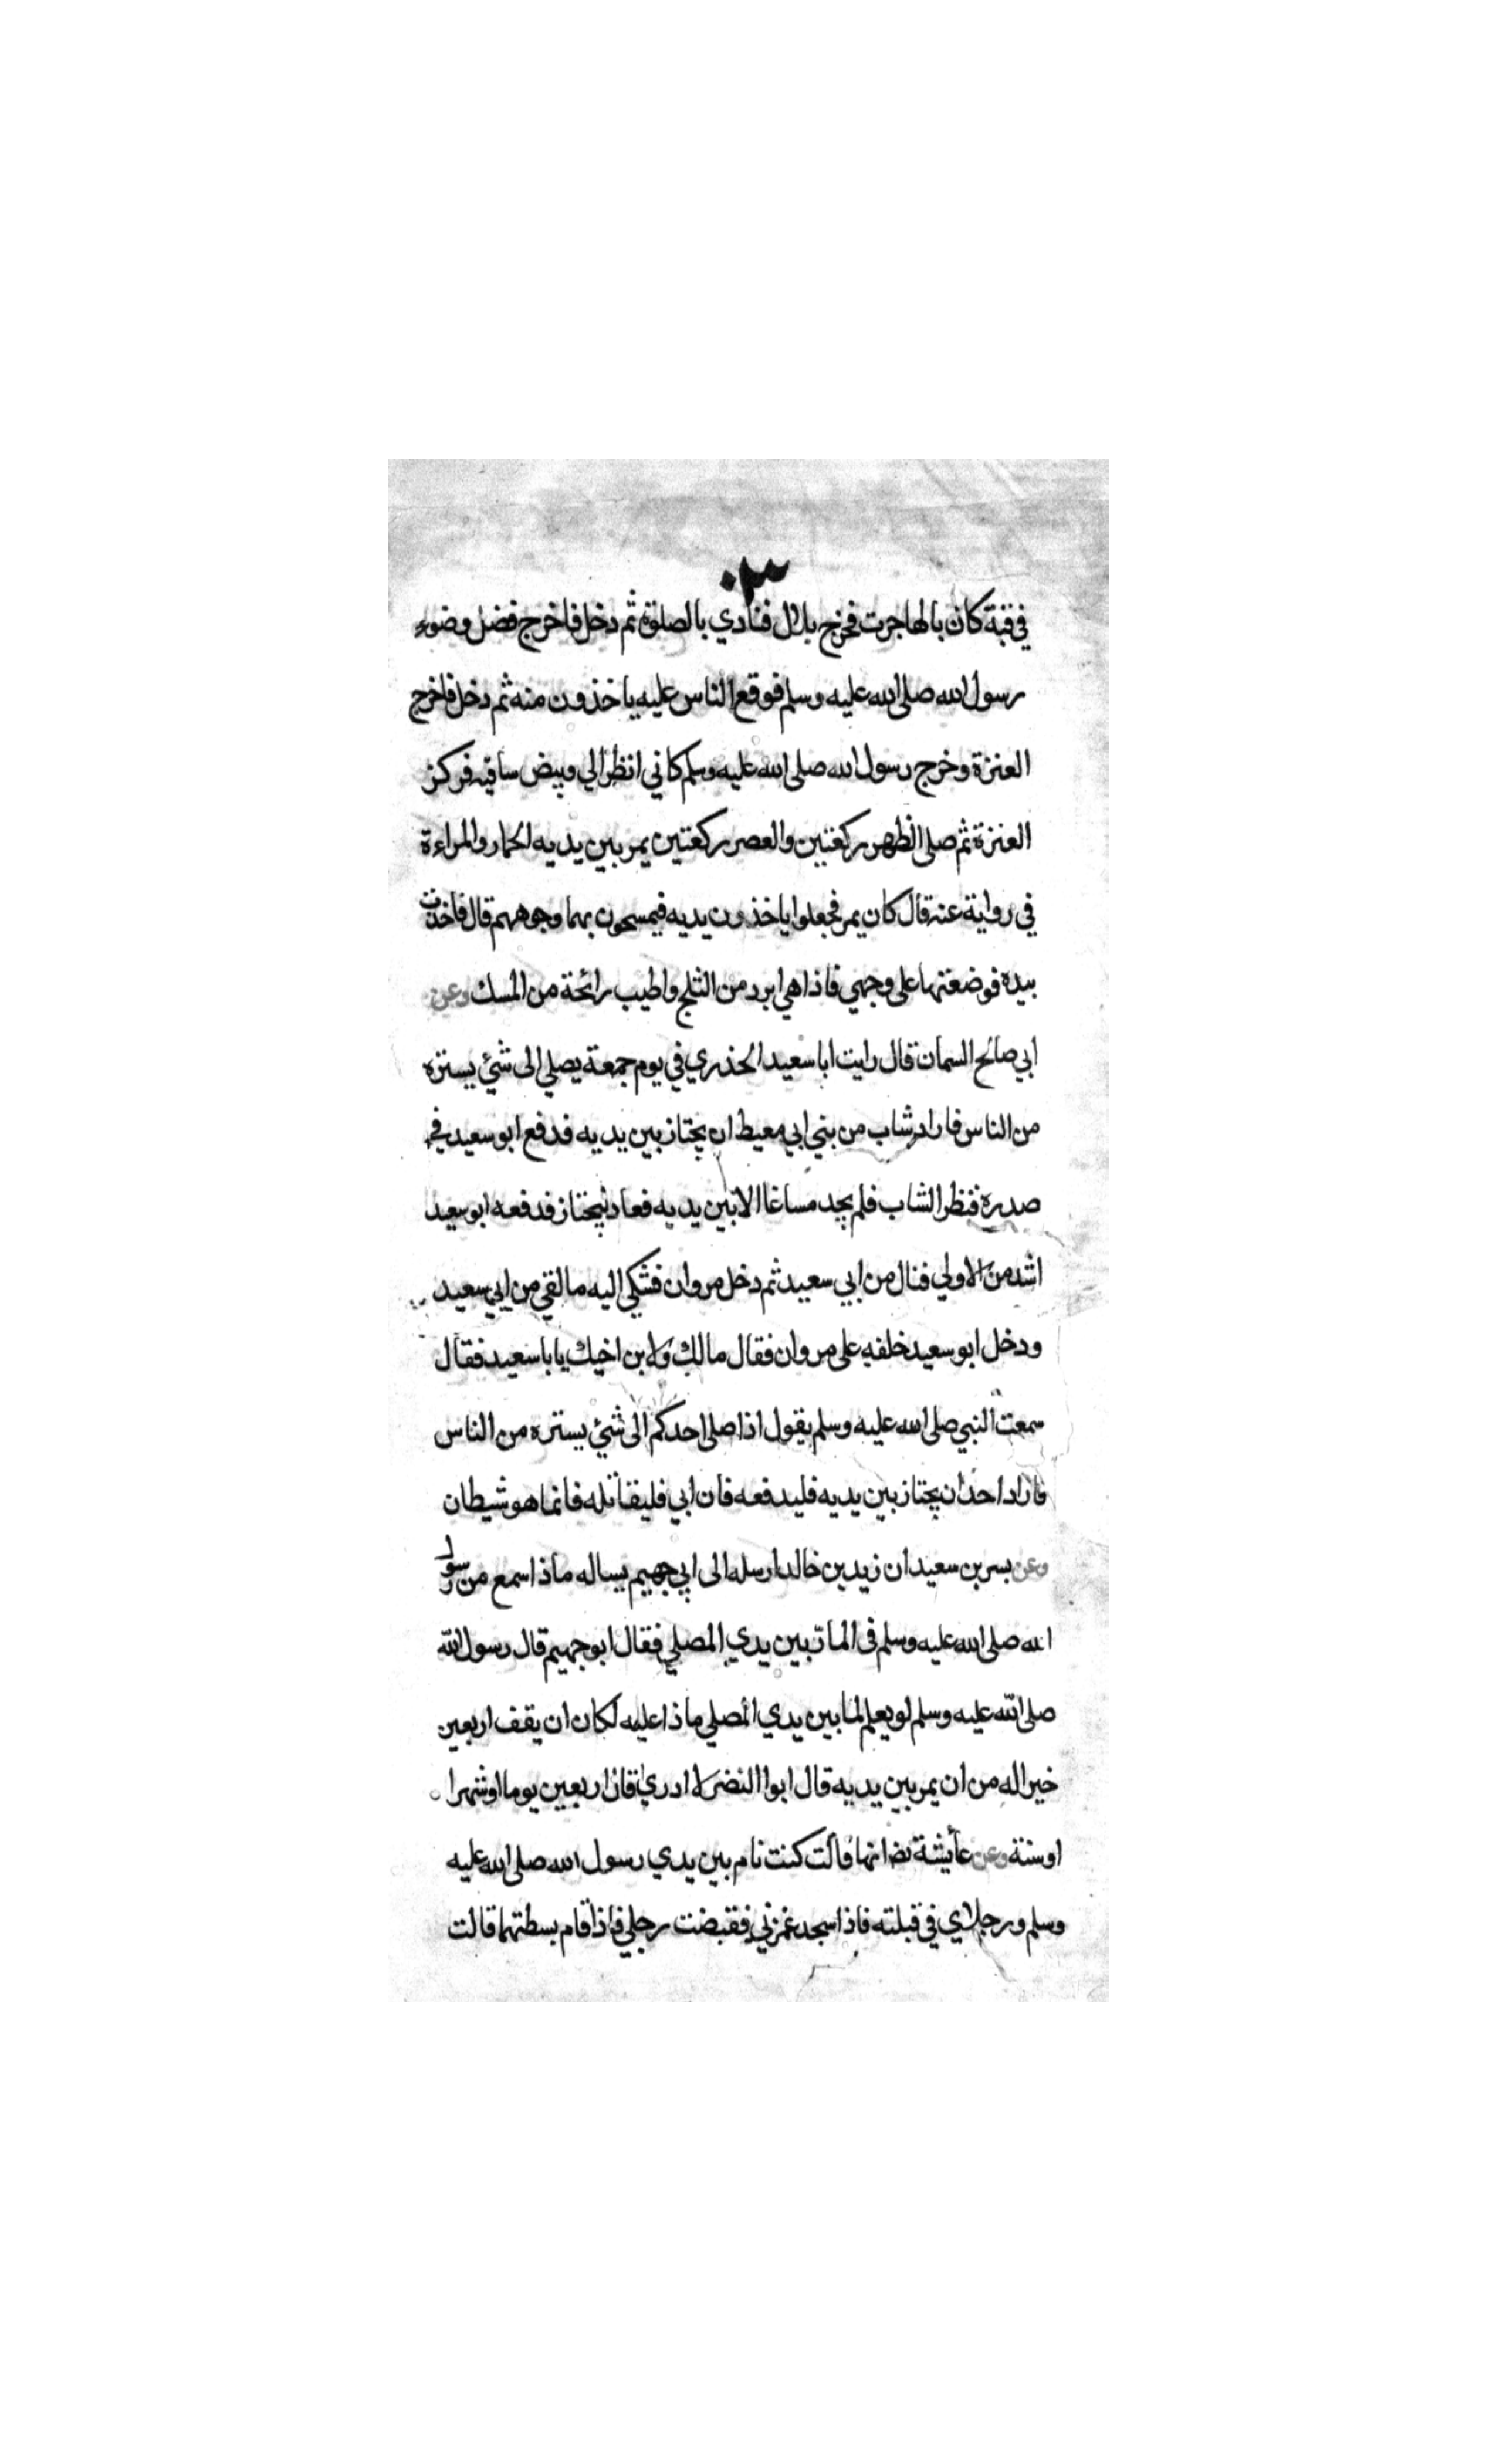 ٣٠
في قبة كان بالهاجرت فخرج بلال فنادي بالصلوة ثم دخل فاخرج فضل وضوء
رسول الله صلى الله عليه وسلم فوقع الناس عليه ياخذون منه ثم دخل فاخرج
العنزة وخرج رسول الله صلى الله عليه وسلم كاني انظر الي وبيض ساقيه فركز
العنزة ثم صلى الظهر ركعتين والعصر ركعتين يمر بين يديه الحمار والمراءة
في رواية عنه قال كان يمر فجعلوا ياخذون يديه فيمسحون بهما وجوههم قال فاخذت
بيده فوضعتها على وجهي فاذا هي ابرد من الثلج واطيب رائحة من المسك وعن
ابي صالح السمان قال رايت ابا سعيد الخذري في يوم جمعة يصلي الى شئ يستره
من الناس فاراد شاب من بني ابي معيط ان يجتاز بين يديه فدفع ابو سعيد في
صدره فنظر الشاب فلم يجد مساغا الا بين يديه فعاد ليجتاز فدفعه ابو سعيد
اشد من الاولي فنال من ابي سعيد ثم دخل مروان فشكي اليه ما لقي من ابي سعيد
ودخل ابو سعيد خلفه على مروان فقال مالك ولابن اخيك يابا سعيد فقال
سمعت النبي صلى الله عليه وسلم يقول اذا صلى احدكم الى شئ يستره من الناس
فاراد احد ان يجتاز بين يديه فليدفعه فان ابي فليقاتله فانما هو شيطان
وعن بسر بن سعيد ان زيد بن خالد ارسله الى ابي جهيم يساله ماذا سمع من رسول
الله صلى الله عليه وسلم في المار بين يدي المصلي فقال ابو جهيم قال رسول الله
صلى الله عليه وسلم لو يعلم المابين يدي المصلي ماذا عليه لكان ان يقف اربعين
خيرا له من ان يمر بين يديه قال ابوا النضر لا ادري قال اربعين يوما او شهرا
او سنة وعن عايشة رضا انها قالت كنت نام بين يدي رسول الله صلى الله عليه
وسلم ورجلاي في قبلته فاذا سجد غمزني فقبضت رجلي فاذا قام بسطتهما قالت